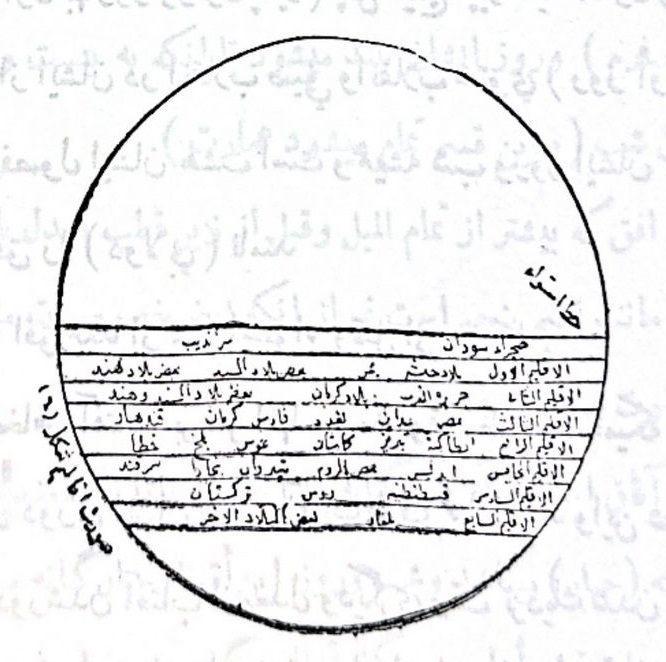 خط استواء
صحراء سودان سرندیب
الاقلیم الاول بلاد حبشه یمن بعض بلاد السند بعض بلاد هند
الاقلیم الثانی جزیرة العرب بلاد کرمان بعض بلاد السند و هند
الاقلیم الثالث مصر همدان بغداد فارس کرمان قندهار
الاقلیم الرابع انطاکیة تبریز کاشان طوس بلخ خطا
الاقلیم الخامس اندلس بعض الروم شیروان بخارا سمرقند
الاقلیم السادس قسطنطنیه روس ترکستان
الاقلیم السابع بلغار بعض البلاد الاخر
صورت اقالیم شکل